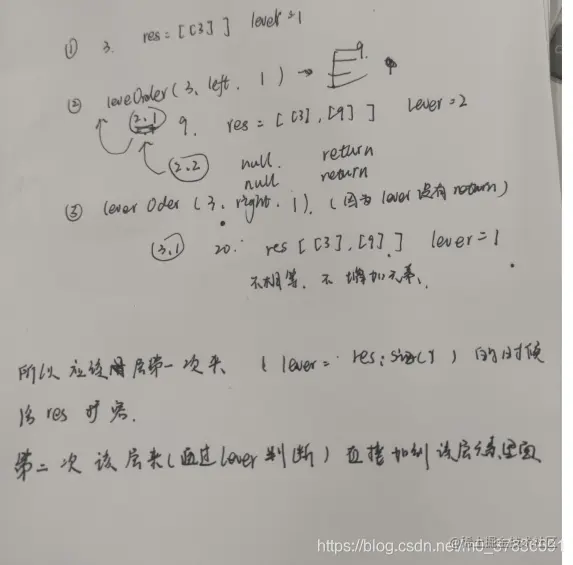 ① 3. res = [ [3] ] lever = 1
② leveOrder ( 3, left, 1 ) → 9.
2.1 9. res = [ [3], [9] ] Lever = 2
2.2 null. return
null return
③ lever Oder ( 3, right, 1 ). ( 因为 lever 没有 return )
3.1 20. res [ [3], [9], ] lever = 1
不相等, 不增加元素、
所以 应该 层第一次来、 ( lever = res.size() ) 的时候
给 res 扩容.
第二次 该层来 ( 通过 lever 判断 ) 直接加到该层 里面
@稀土掘金技术社区